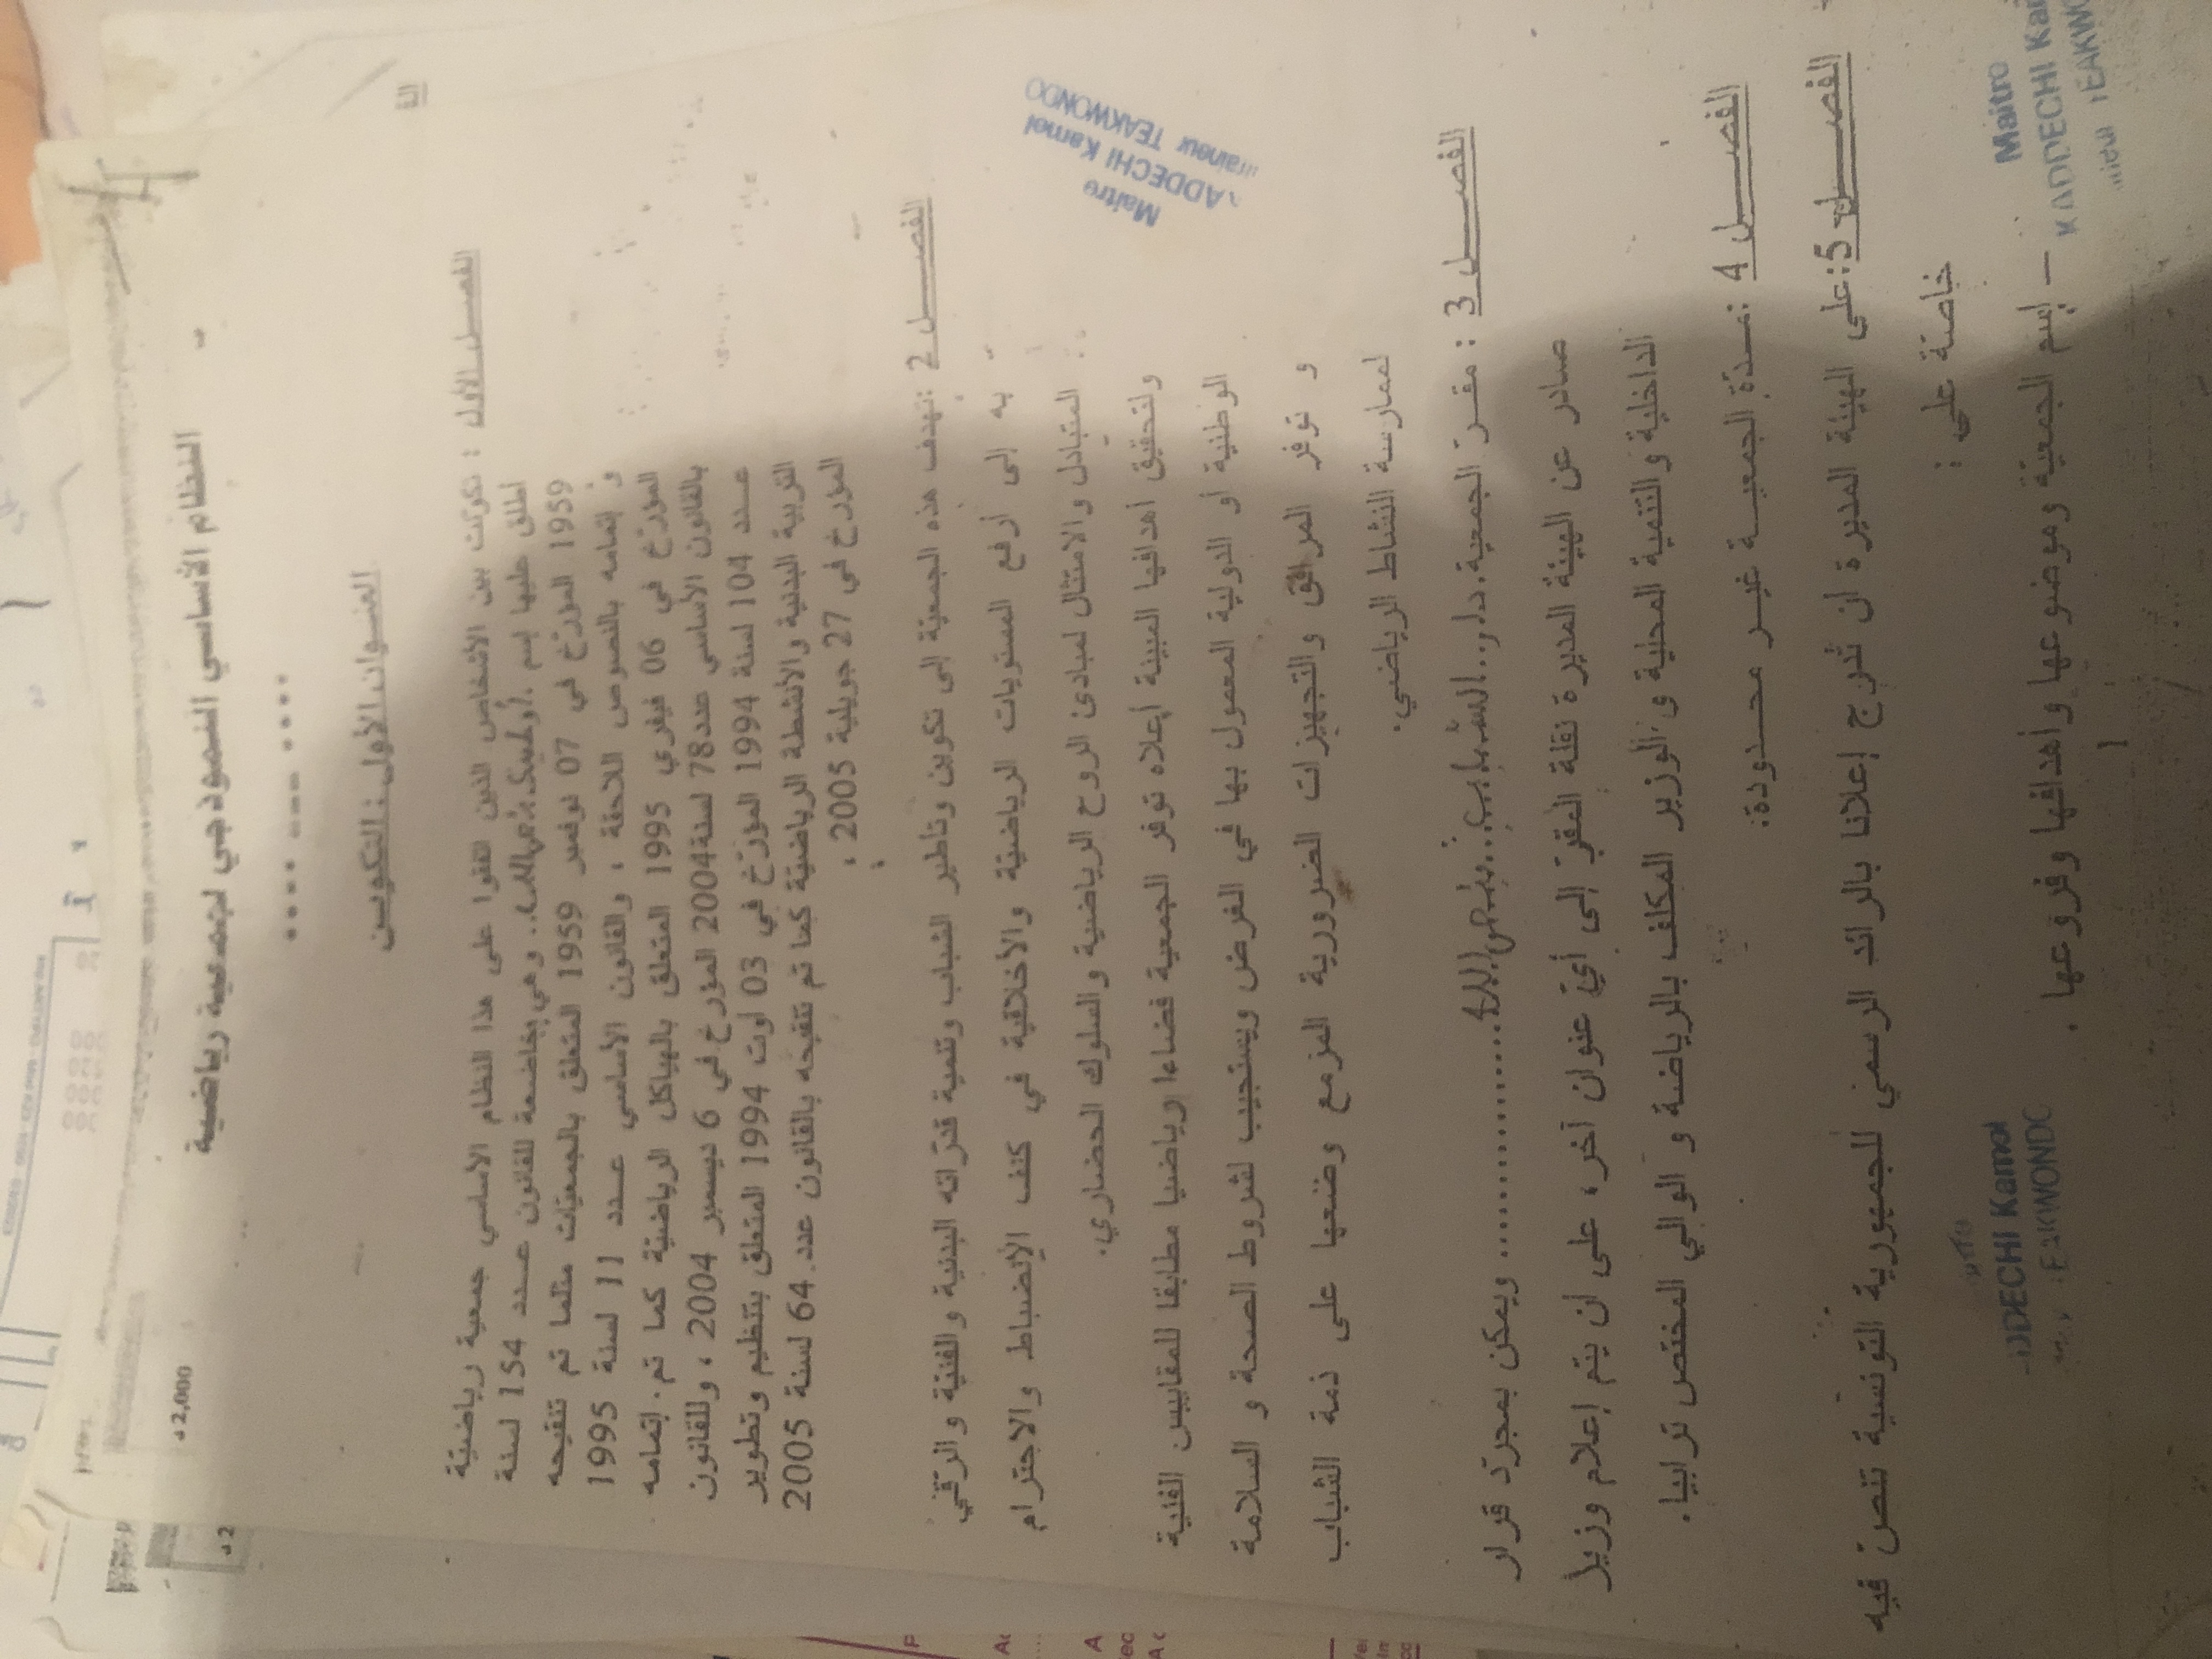 النظام الأساسي النموذجي لجمعية رياضية
العنوان الأول : التكوين
الفصل الأول : تكونت بين الأشخاص الذين اتفقوا على هذا النظام الأساسي جمعية رياضية
أطلق عليها إسم وهي خاضعة للقانون عدد 154 لسنة
1959 المؤرّخ في 07 نوفمبر 1959 المتعلق بالجمعيّات مثلما تم تنقيحه
و إتمامه بالنصوص اللاحقة ، والقانون الأساسي عدد 11 لسنة 1995
المؤرّخ في 06 فيفري 1995 المتعلق بالهياكل الرياضيّة كما تم إتمامه
بالقانون الأساسي عدد78 لسنة2004 المؤرخ في 6 ديسمبر 2004 ، وللقانون
عدد 104 لسنة 1994 المؤرّخ في 03 أوت 1994 المتعلق بتنظيم وتطوير
التربية البدنية والأنشطة الرياضيّة كما تم تنقيحه بالقانون عدد 64 لسنة 2005
المؤرخ في 27 جويلية 2005 ،
الفصل 2 :تهدف هذه الجمعيّة إلى تكوين وتأطير الشباب وتنمية قدراته البدنية والفنيّة والرقي
به إلى أرفع المستويات الرياضيّة والأخلاقية في كنف الإنضباط والاحترام
المتبادل والامتثال لمبادئ الروح الرياضية والسلوك الحضاري.
ولتحقيق أهدافها المبينة أعلاه توفر الجمعية فضاءا رياضيا مطابقا للمقاييس الفنية
الوطنية أو الدولية المعمول بها في الغرض ويستجيب لشروط الصحة و السلامة
و توفر المرافق والتجهيزات الضرورية المزمع وضعها على ذمة الشباب
لممارسة النشاط الرياضي.
الفصل 3 : مقرّ الجمعية دار الشباب ويمكن بمجرّد قرار
صادر عن الهيئة المديرة نقلة المقرّ إلى أيّ عنوان آخر، على أن يتم إعلام وزير
الداخلية والتنمية المحلية و الوزير المكلف بالرياضة و الوالي المختص ترابيا.
الفصل 4 :مدّة الجمعية غير محدودة.
الفصل 5 :على الهيئة المديرة ان تدرج إعلانا بالرائد الرسمي للجمهورية التونسية تنصّ فيه
خاصّة على :
– إسم الجمعيّة وموضوعها وأهدافها وفروعها .
1
Maitre
ADDECHI Kamel
TEAKWONDO
Maitre
KADDECHI
DDECHI Kamel
2,000